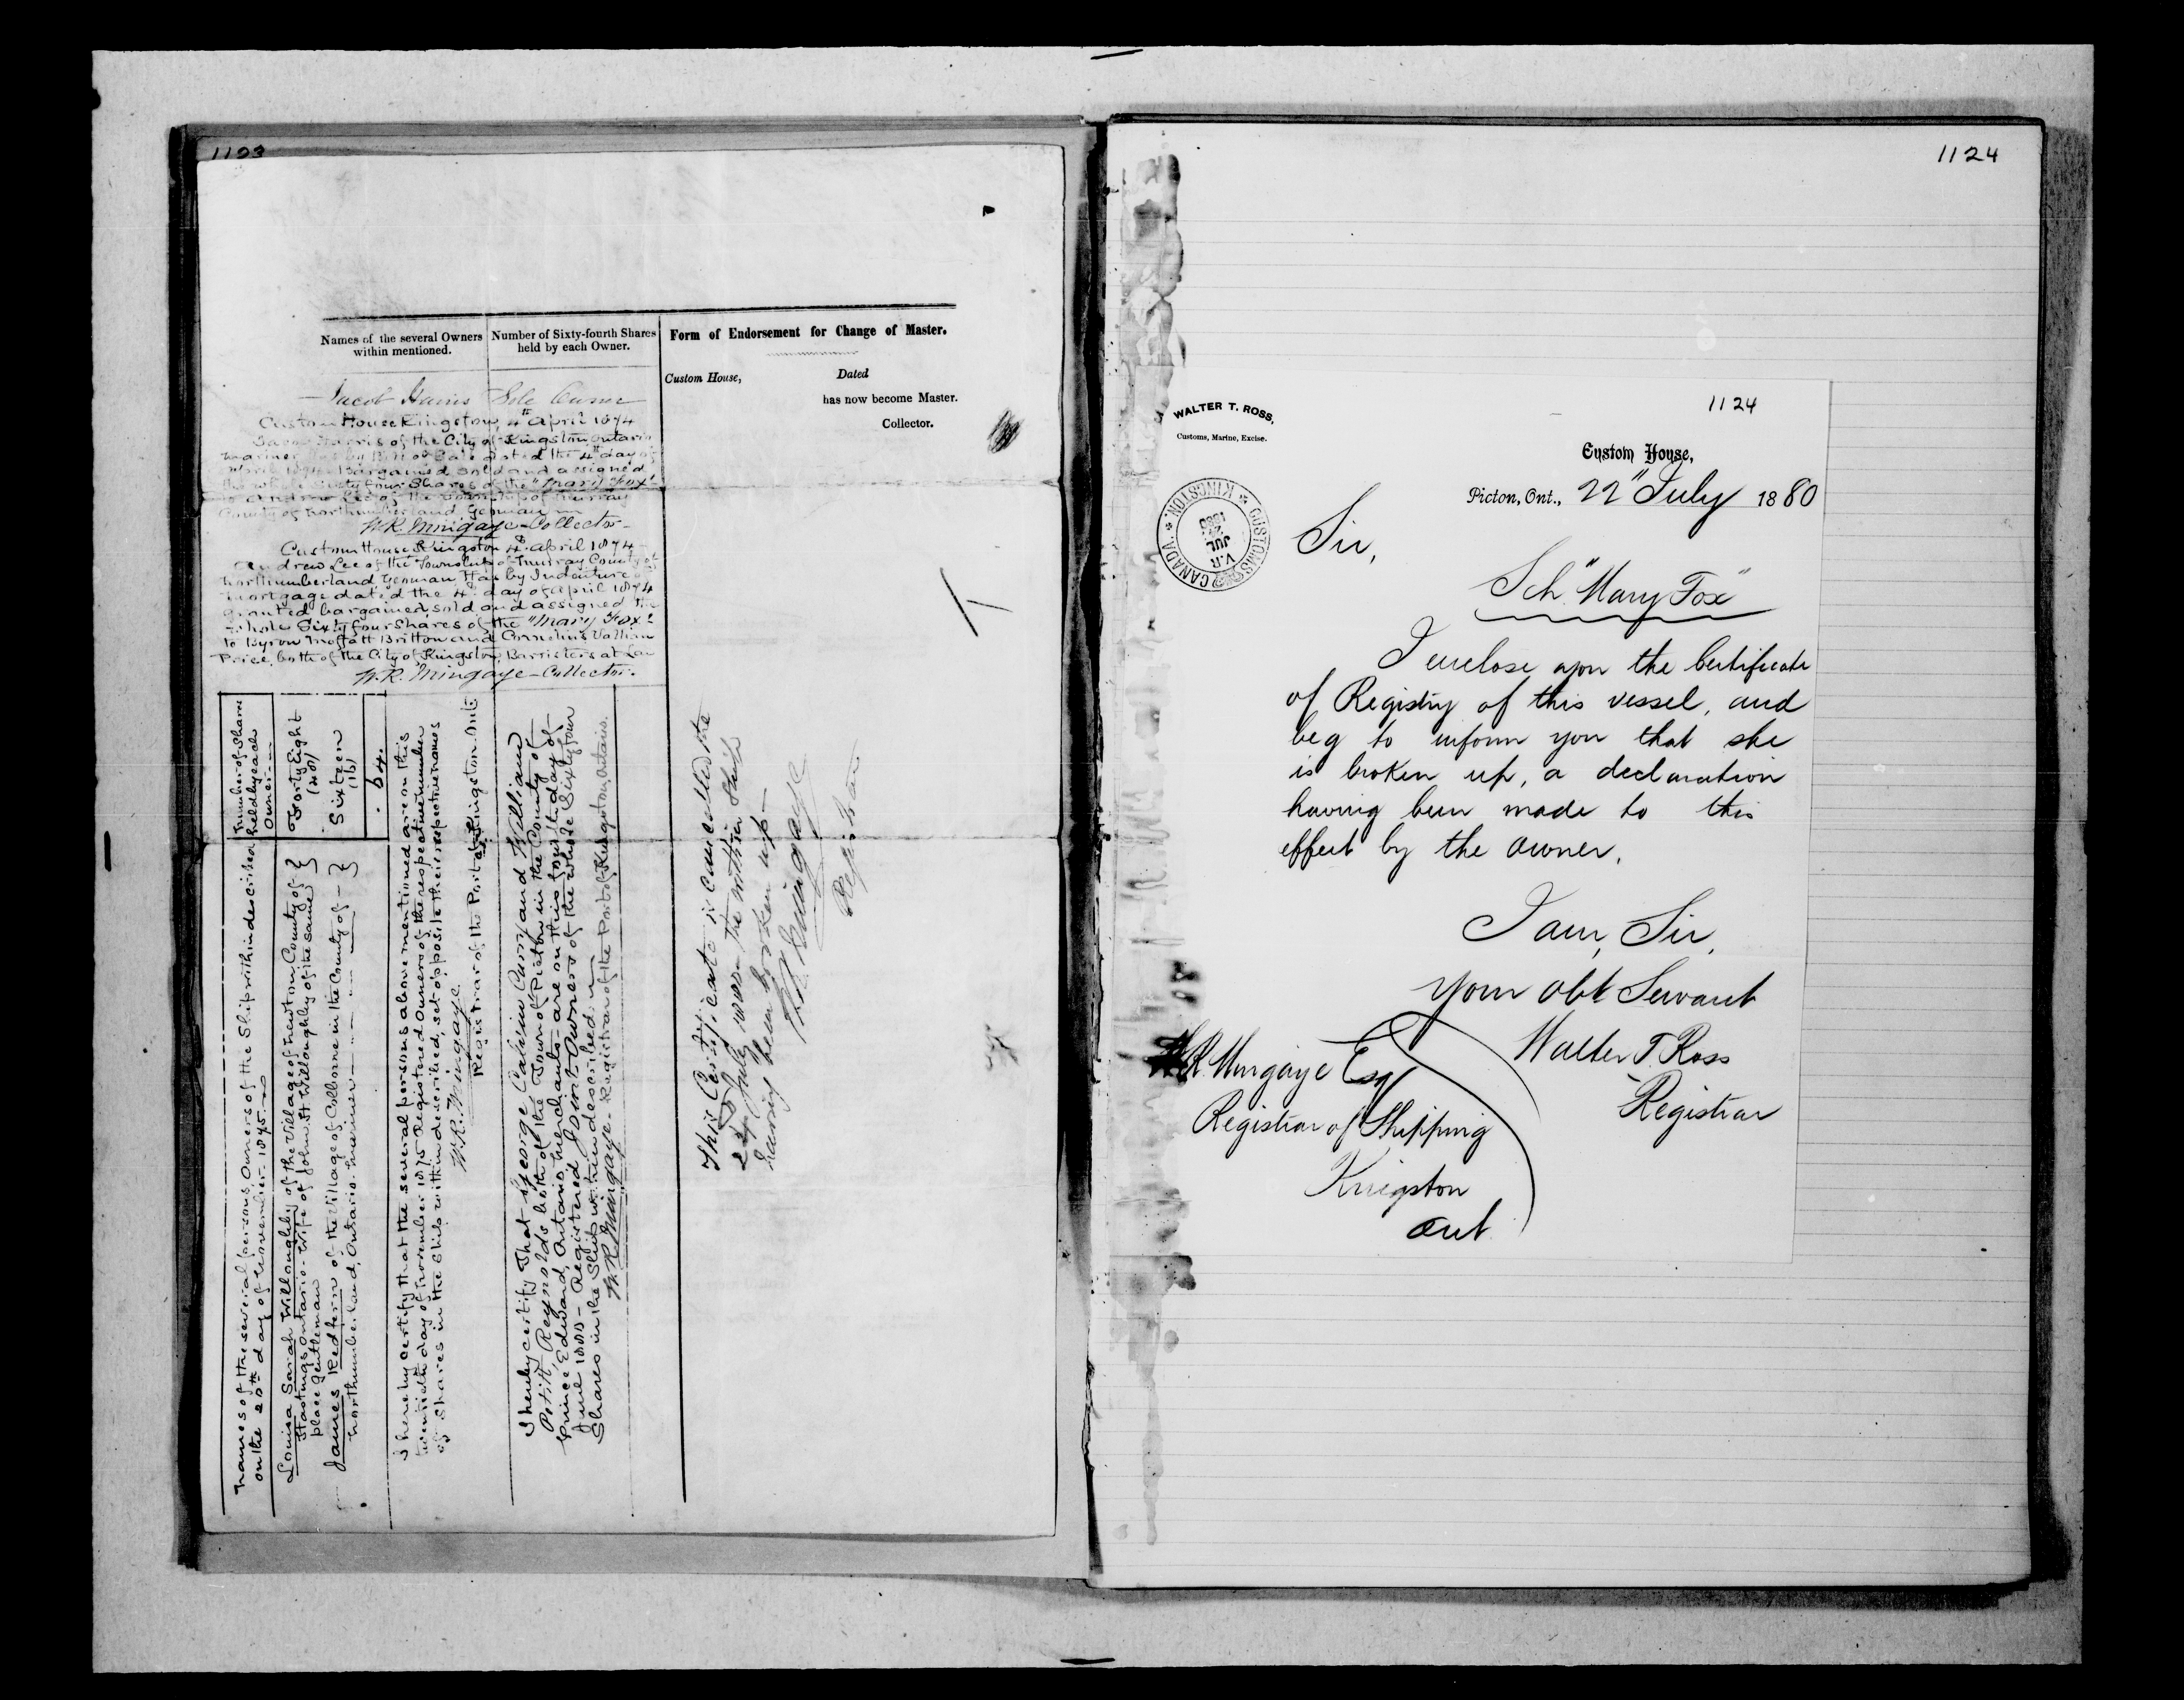 1123
Names of the several Owners
within mentioned.
Number of Sixty-fourth Shares
held by each Owner.
Form of Endorsement for Change of Master.
Custom House,
Dated
has now become Master.
Collector.
Jacob Harris Sole Owner
Custom House Kingston, 4th April 1874
Jacob Harris of the City of Kingston Ontario
Mariner has by Bill of Sale dated the 4th day of
April 1874 Bargained sold and assigned
the whole Sixty four Shares of the "Mary Fox"
to Andrew Lee of the Township of Murray
County of Northumberland, Yeoman
W.R. Mingaye - Collector -
Custom House Kingston 4th April 1874 -
Andrew Lee of the Township of Murray County of
Northumberland Yeoman, Has by Indenture of
Mortgage dated the 4th day of April 1874
granted bargained, sold and assigned the
whole Sixty four Shares of the "Mary Fox"
to Byron Moffatt Britton and Cornelius
Price, both of the City of Kingston, Barristers at Law
W.R. Mingaye - Collector.
Names of the several persons Owners of the Ship within described
on the 20th day of November 1875 -
Number of Shares
held by each
Owner -
Louisa Sarah Willoughby of the Village of Newton, County of
Hastings Ontario - Wife of John H Willoughby of the same
place gentleman
Forty Eight
(48)
James Redfern of the Village of Colborne in the County of -
Northumberland, Ontario. Mariner -
Sixteen
(16)
64.
I hereby certify that the several persons above mentioned are on this
twentieth day of November 1875 Registered Owners of the respective number
of Shares in the Ship within described, set opposite their respective names
W.R. Mingaye
Registrar of the Port of Kingston Ont.
I hereby certify That George Calvin Curry and William
Pettit Reynolds both of the Town of Picton in the County of
Prince Edward, Ontario, Merchants - are on this fourth day of -
June 1880 - Registered Joint Owners of the whole Sixty four
Shares in the Ship within described. -
W.R. Mingaye - Registrar of the Port of Kingston, Ontario.
This Certificate is cancelled the
24 July 1880 - the within Ship
having been broken up -
W.R. Mingaye
Registrar
1124
1124
WALTER T. ROSS,
Customs, Marine, Excise.
CUSTOMS * KINGSTON * CANADA
V.R.
JUL
1880
Custom House,
Picton, Ont., 22" July 1880
Sir,
Sch "Mary Fox"
I enclose you the Certificate
of Registry of this vessel, and
beg to inform you that she
is broken up, a declaration
having been made to this
effect by the owner.
I am, Sir,
Your Obt Servant
Walter T Ross
Registrar
W.R. Mingaye Esq
Registrar of Shipping
Kingston
Ont